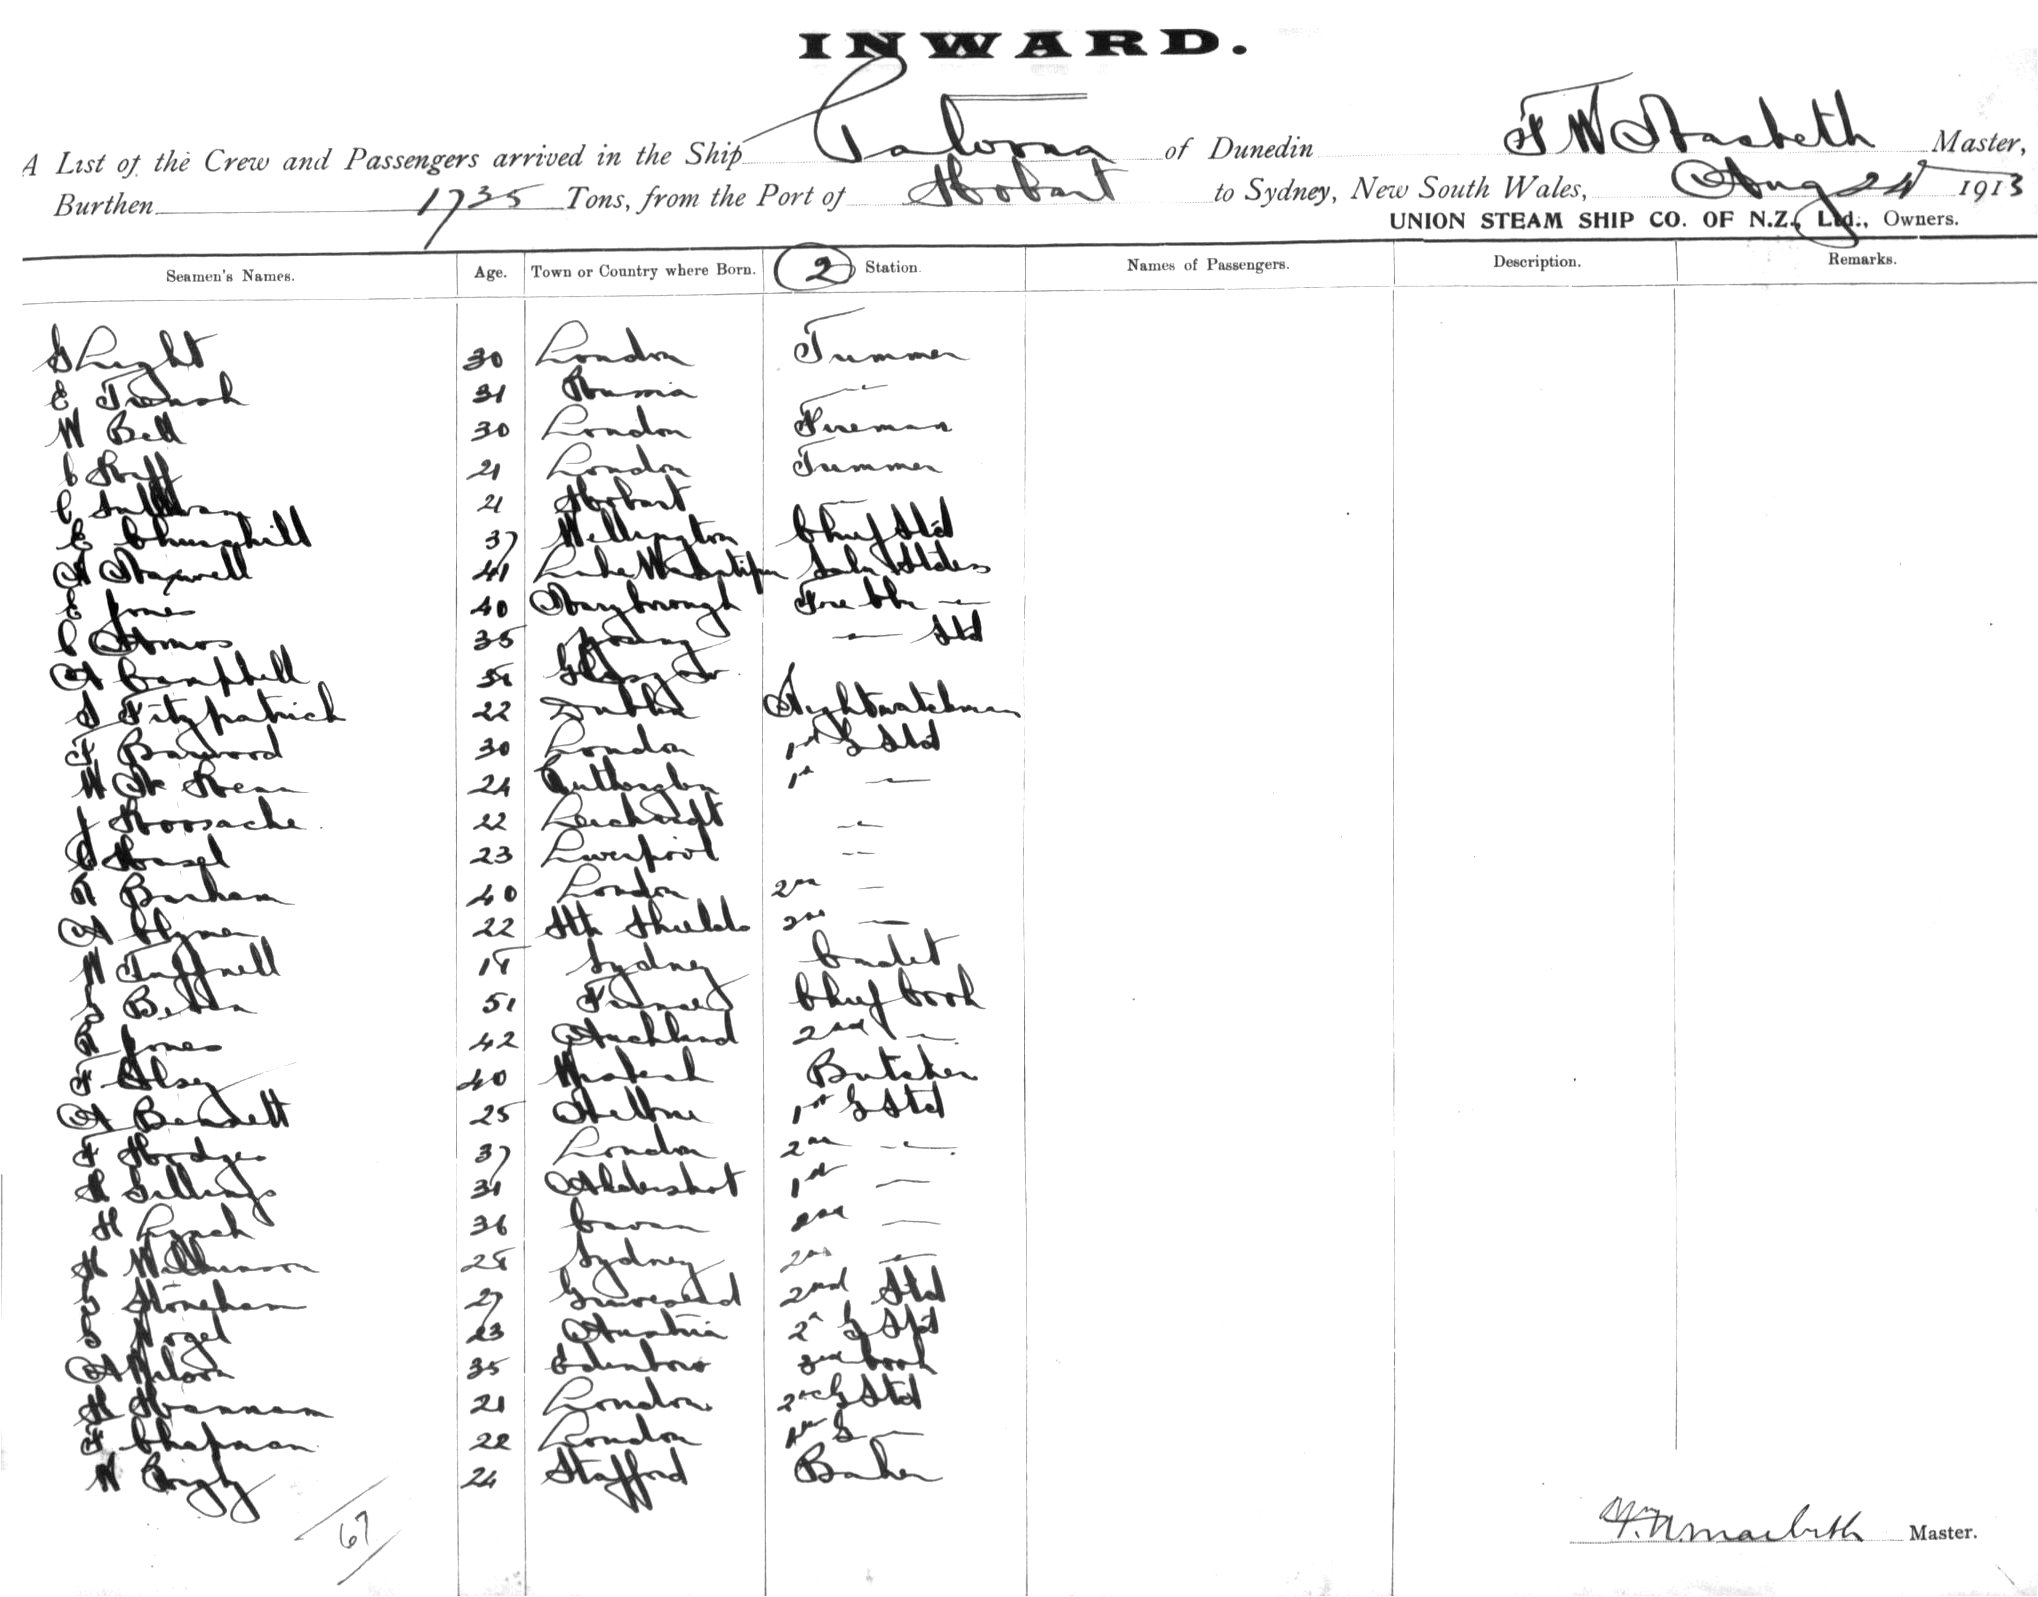 INWARD.
A List of the Crew and Passengers arrived in the Ship Paloona of Dunedin F W Macbeth Master,
Burthen 1735 Tons, from the Port of Hobart to Sydney, New South Wales, Aug 24 1913
UNION STEAM SHIP CO. OF N.Z., Ltd., Owners.
Seamen's Names. Age. Town or Country where Born. 2 Station. Names of Passengers. Description. Remarks.
Light 30 London Trimmer
E 31 Russia
W Bell 30 London Fireman
C 21 London Trimmer
C Sullivan 21 Hobart
E Churchill 37 Wellington Chief Std
A Maxwell 41 Lake Wakatipu Saln Stdess
E Jones 40 Maryborough Fore Cbn
C 35 Std
A Campbell Glasgow
Fitzpatrick 22 Dublin Nightwatchman
F Barwood 30 London 1st G Std
W 24 1st
J 22 Leichardt
C 23 Liverpool
R Barham 40 London 2nd
A Clymer 22 Sth Shields 2nd
W Tuffnell 18 Sydney Cadet
51 Chief Cook
R Jones 42 Auckland 2nd
F 40 Butcher
A Bennett 25 Melbne 1st G Std
F Hodges 37 London 2nd
31 Aldershot 1st
H Lynch 36 Cavan 2nd
H Wilkinson 28 Sydney 2nd
G Stoneham 27 Gravesend 2nd Std
G 23 Austria 2nd G Std
A Wilson 35 Edenboro 3rd Cook
H Hannam 21 London 2nd G Std
F Chapman 22 London 1st G
W 24 Stafford Baker
67
F. W. Macbeth Master.